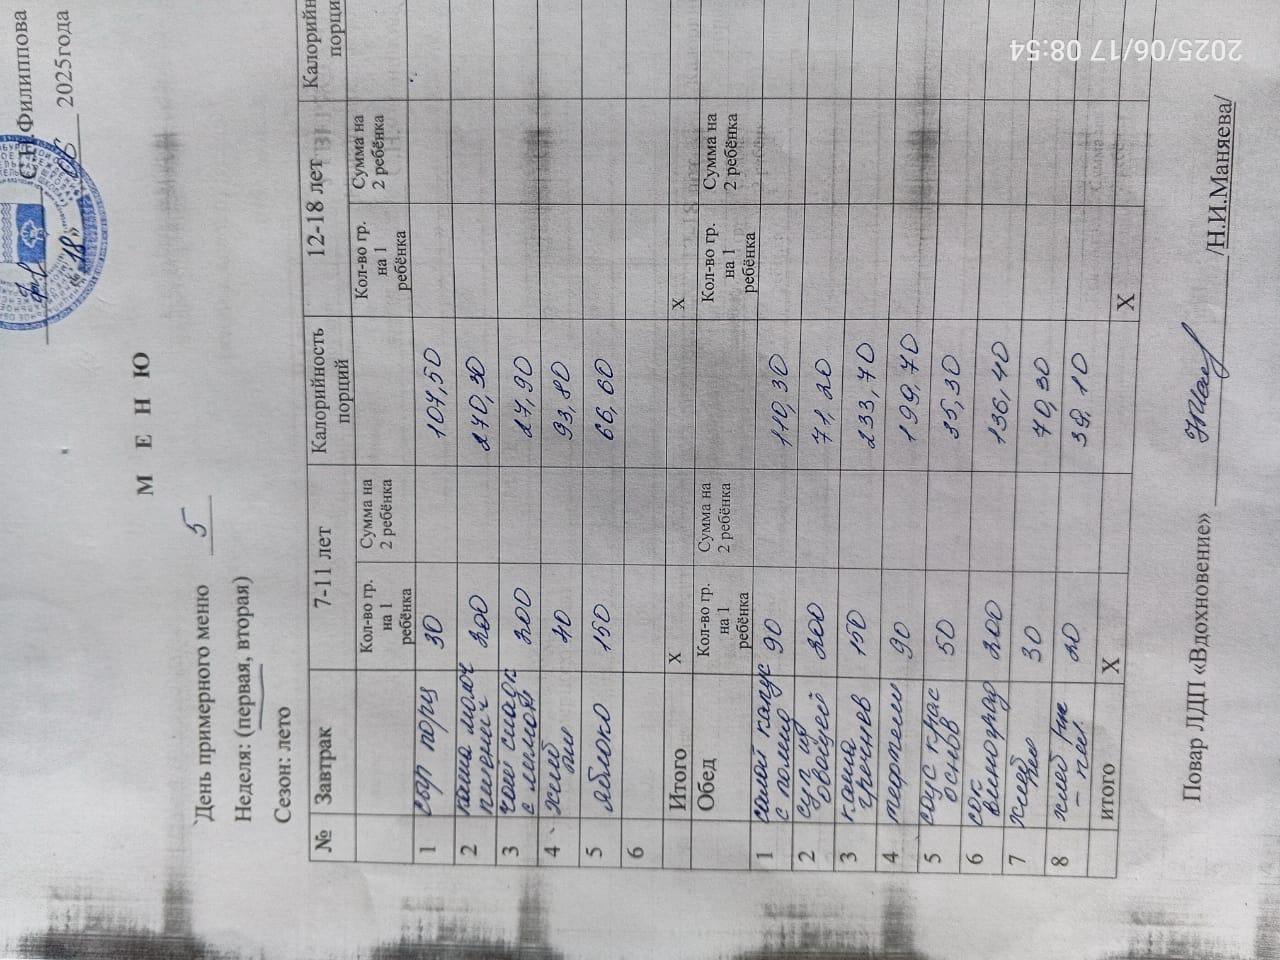 С.Н.Филиппова
« 18 » 06 2025года
М Е Н Ю
День примерного меню 5
Неделя: (первая, вторая)
Сезон: лето
№ Завтрак 7-11 лет Калорийность порций 12-18 лет Калорийн порци
Кол-во гр. на 1 ребёнка Сумма на 2 ребёнка Кол-во гр. на 1 ребёнка Сумма на 2 ребёнка
1 сыр порц 30 107,50
2 каша молоч пшенич 200 270,30
3 чай сладк с лимон 200 27,90
4 хлеб пш 40 93,80
5 яблоко 150 66,60
6
Итого Х Х
Обед Кол-во гр. на 1 ребёнка Сумма на 2 ребёнка Кол-во гр. на 1 ребёнка Сумма на 2 ребёнка
1 салат капус с помид 90 110,30
2 суп из овощей 200 71,20
3 каша гречнев 150 233,70
4 тефтели 90 199,70
5 соус крас основ 50 35,30
6 сок виноград 200 136,40
7 хлеб пш 30 70,30
8 хлеб рж - пш 20 39,10
ИТОГО Х Х
Повар ЛДП «Вдохновение» /Н.И.Маняева/
2025/06/17 08:54